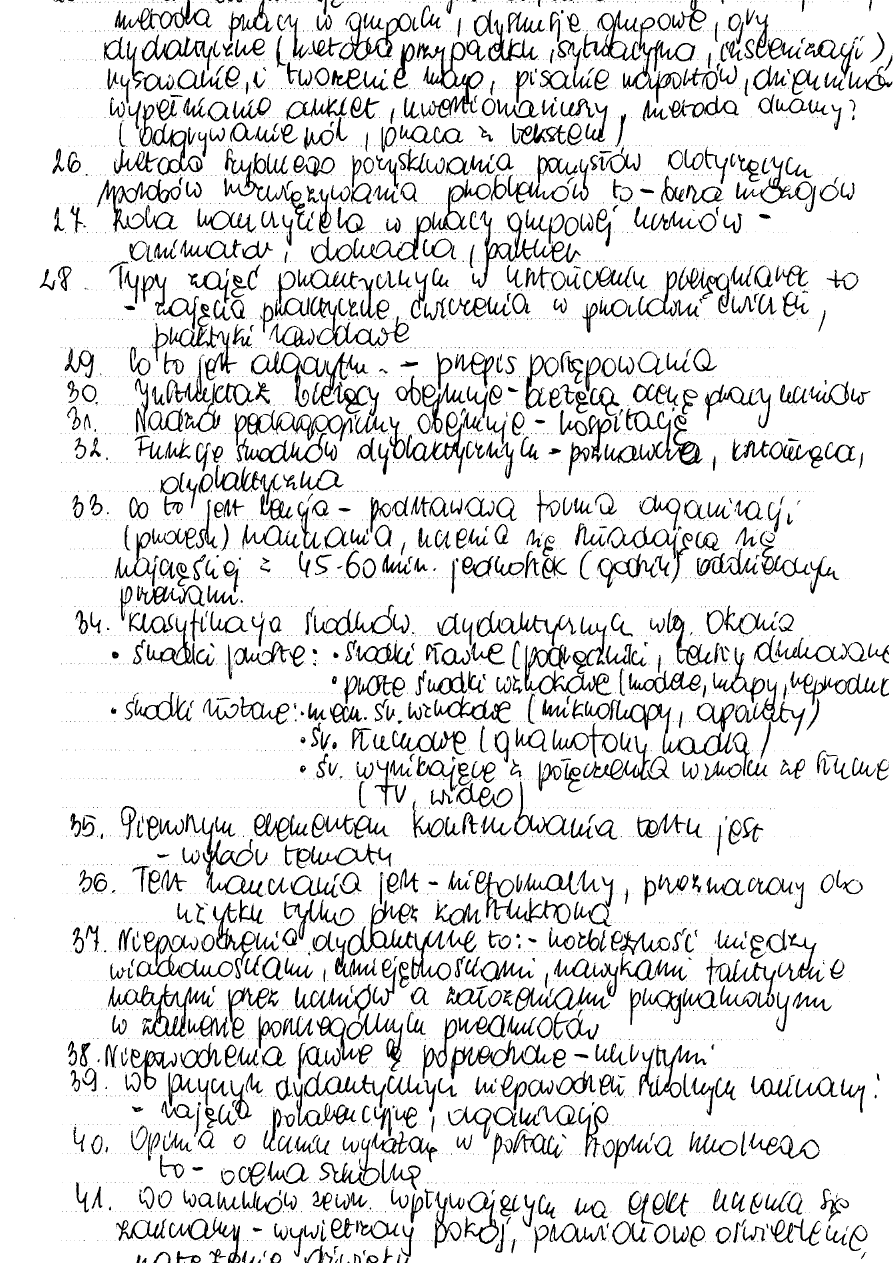 metoda pracy w grupach, dyskusje grupowe, gry
dydaktyczne (metoda przypadku, sytuacyjna, inscenizacji),
rysowanie, i tworzenie map, pisanie raportów, dzienników
wypełnianie ankiet, kwestionariuszy, metoda dramy?
(odgrywanie ról, praca z tekstem)
26. Metoda szybkiego pozyskiwania pomysłów dotyczących
sposobów rozwiązywania problemów to - burza mózgów
27. Rola nauczyciela w pracy grupowej uczniów -
animator, doradca, partner
28. Typy zajęć praktycznych w kształceniu pielęgniarek to
- zajęcia praktyczne, ćwiczenia w pracowni ćwiczeń,
praktyki zawodowe
29. Co to jest algorytm - - przepis postępowania
30. Instruktaż bieżący obejmuje - bieżącą ocenę pracy uczniów
31. Nadzór pedagogiczny obejmuje - hospitację
32. Funkcje środków dydaktycznych - poznawcza, kształcąca,
dydaktyczna
33. Co to jest lekcja - podstawowa forma organizacji
(procesu) nauczania, uczenia się składająca się
najczęściej z 45-60 min. jednostek (godzin) oddzielonych
przerwami.
34. Klasyfikacja środków dydaktycznych wg. Okonia
• środki proste: • środki słowne (podręczniki, teksty drukowane
• proste środki wzrokowe (modele, mapy, reproduk
• środki złożone: • mech. śr. wzrokowe (mikroskopy, aparaty)
• śr. słuchowe (gramofony radia)
• śr. wynikające z połączenia wzroku ze słuche
(TV, wideo)
35. Pierwszym elementem konstruowania testu jest
- wybór tematu
36. Test nauczania jest - nieformalny, przeznaczony do
użytku tylko przez konstruktora
37. Niepowodzenia dydaktyczne to: - rozbieżność między
wiadomościami, umiejętnościami, nawykami faktycznie
nabytymi przez uczniów a założeniami programowymi
w zakresie poszczególnych przedmiotów
38. Niepowodzenia jawne są poprzedzone - ukrytymi
39. Do przyczyn dydaktycznych niepowodzeń szkolnych zaliczamy:
- zajęcia polekcyjne, organizacja
40. Opinia o uczniu wyrażana w postaci stopnia szkolnego
to - ocena szkolna
41. Do warunków zewn. wpływających na efekt uczenia się
zaliczamy - wywietrzony pokój, prawidłowe oświetlenie,
natężenie dźwięku